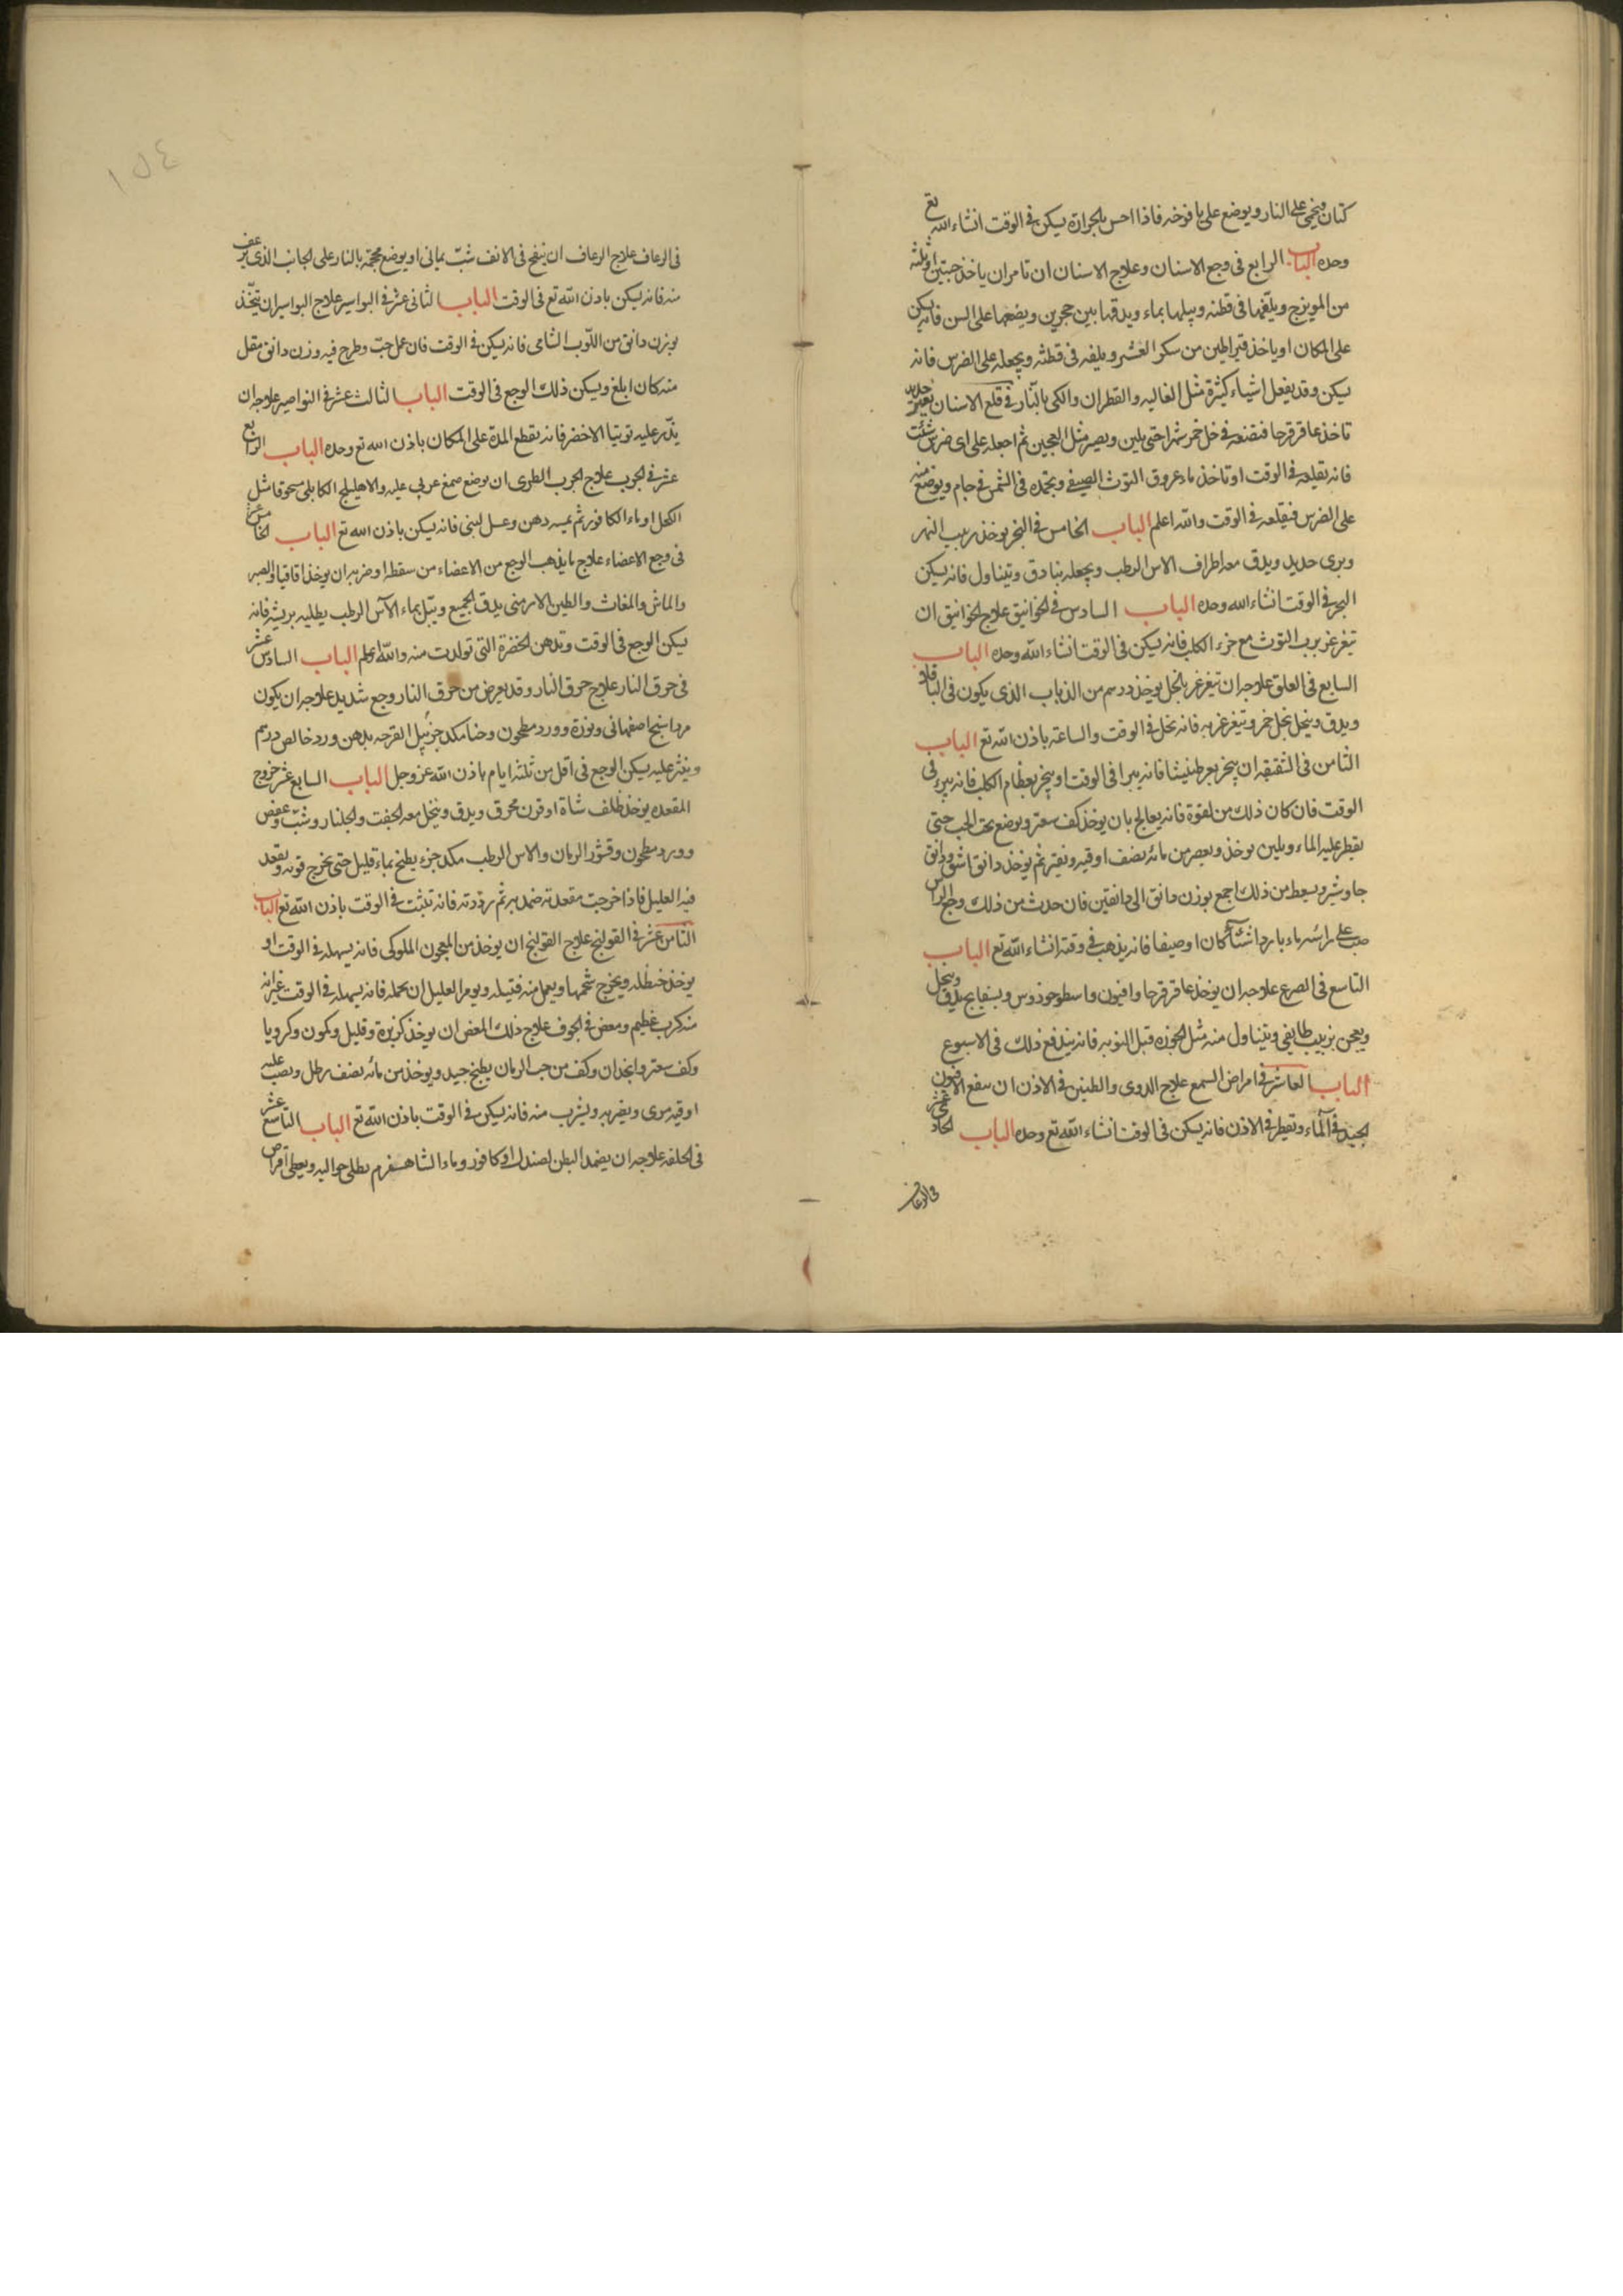 كتان ويحمى على النار ويوضع على يافوخه فاذا احس بالحرارة يسكن فى الوقت انشاء الله تع
وحده الباب الرابع فى وجع الاسنان وعلاج الاسنان ان تامر ان ياخذ حبتين او ثلثه
من المويزج ويلفها فى قطنه ويبلها بماء ويدقها بين حجرين ويضعها على السن فانه يسكن
على المكان او ياخذ قيراطين من سكر العشر ويلفه فى قطنه ويجعله على الضرس فانه
يسكن وقد يفعل اشياء كثيرة مثل الغاليه والقطران والكى بالنار فى قلع الاسنان بغير حديد
تاخذ عاقرقرحا فتنقعه فى خل خمر شهرا حتى يلين ويصير مثل العجين ثم اجعله على اى ضرس شئت
فانه تقلعه فى الوقت او تاخذ ماء عروق التوث الصيفى وتجمده فى الشمس فى جام ويوضع منه
على الضرس فيقلعه فى الوقت والله اعلم الباب الخامس فى البخر يوخذ زبيب النمر
وبرى حديد ويدق معه اطراف الاس الرطب ويجعله بنادق ويتناول فانه يسكن
البخر فى الوقت انشاء الله وحده الباب السادس فى الخوانيق علاج الخوانيق ان
تيغرغر برب التوث مع خرء الكلب فانه يسكن فى الوقت انشاء الله وحده الباب
السابع فى العلق علاجه ان تيغرغر بالخل يوخذ درسم من الذباب الذى يكون فى الباقلا
ويدق وينخل بخل خمر وتيغرغر به فانه نخل فى الوقت والساعة باذن الله تع الباب
الثامن فى الشقيقه ان يبخر بعرطنيثا فانه يبرا فى الوقت او يبخر بعظام الكلب فانه يبرء فى
الوقت فان كان ذلك من لقوة فانه يعالج بان يوخذ كف سعتر ويوضع تحت الحب حتى
يقطر عليه الماء ويلين يوخذ ويعصر من مائه نصف اوقيه ويفتر ثم يوخذ دانق اشق ودانق
جاوشير ويسعط من ذلك اجمع بوزن دانق الى دانقين فان حدث من ذلك وجع الراس
صب على راسه ماء باردا شتآء كان او صيفا فانه يذهب فى وقته انشاء الله تع الباب
التاسع فى الصرع علاجه ان يوخذ عاقرقرحا وافيون واسطوخوذوس وبسفايج يدق وينخل
ويعجن بزبيب طايفى ويتناول منه مثل الجوزه قبل النوبه فانه يندفع ذلك فى الاسبوع
الباب العاشر فى امراض السمع علاج الدوى والطنين فى الاذن ان ينقع الافيون
الجيد فى المآء وتقطر فى الاذن فانه يسكن فى الوقت انشاء الله تع وحده الباب الحاد عشر
فى الرعاف
١٥٤
فى الرعاف علاج الرعاف ان ينفخ فى الانف شب يمانى او يوضع محجمة بالنار على الجانب الذى يرعف
منه فانه يسكن باذن الله تع فى الوقت الباب الثانى عشر فى البواسير علاج البواسير ان تتخذ
بوزن دانق من اللوب الشامى فانه يسكن فى الوقت فان عمل حب وطرح فيه وزن دانق مقل
منه كان ابلغ ويسكن ذلك الوجع فى الوقت الباب الثالث عشر فى النواصير علاجه ان
يذر عليه توتيا الاخضر فانه تقطع المدة على المكان باذن الله تع وحده الباب الرابع
عشر فى الجرب علاج الجرب الطرى ان يوضع صمغ عربى عليه والاهليلج الكابلى مسحوقا مثل
الكحل او ماء الكافور ثم يمسه دهن وعسل لبنى فانه يسكن باذن الله تع الباب الخامس عشر
فى وجع الاعضاء علاج ما يذهب الوجع من الاعضاء من سقطه او ضربه ان يوخذ اقاقيا والصبر
والماش والمغاث والطين الارمنى يدق الجميع ويبل بماء الآس الرطب يطليه بريشه فانه
يسكن الوجع فى الوقت وتدهن الخضرة التى تولدت منه والله اعلم الباب السادس عشر
فى حرق النار علاج حرق النار وقد يعرض من حرق النار وجع شديد علاجه ان يكون
مرداسنج اصفهانى ونورة وورد مطحون وحنا مكد جزء يبل القرحه بدهن ورد خالص درهم
وينثر عليه يسكن الوجع فى اقل من ثلثه ايام باذن الله عز وجل الباب السابع عشر خروج
المقعده يوخذ ظلف شاة او قرن محرق ويدق وينخل معه الجفت والجلنار وشب وعفص
وورد مطحون وقشور الرمان والاس الرطب مكد جزء يطبخ بماء قليل حتى يخرج قوته ويقعد
فيه العليل فاذا خرجت مقعدته ضمد به ثم رددته فانه تثبت فى الوقت باذن الله تع الباب
الثامن عشر فى القولنج علاج القولنج ان يوخذ من المعجون الملوكى فانه يسهله فى الوقت او
يوخذ حنظله ويخرج شحمها ويعمل منه فتيله ويومر العليل ان يحمله فانه يسهله فى الوقت غير انه
منه كرب عظيم ومغص فى الجوف علاج ذلك المغص ان يوخذ كزبرة وقليل وكمون وكرويا
وكف سعتر وانجدان وكف من حب الرمان يطبخ جيد ويوخذ من مائه نصف رطل ويصب عليه
اوقيه مرى ويضربه ويشرب منه فانه يسكن فى الوقت باذن الله تع الباب التاسع عشر
فى الخلفه علاجه ان يضمد البطن لصندل او كافور وماء الشاهسفرم يطلى حواليه ويعطى اقراص